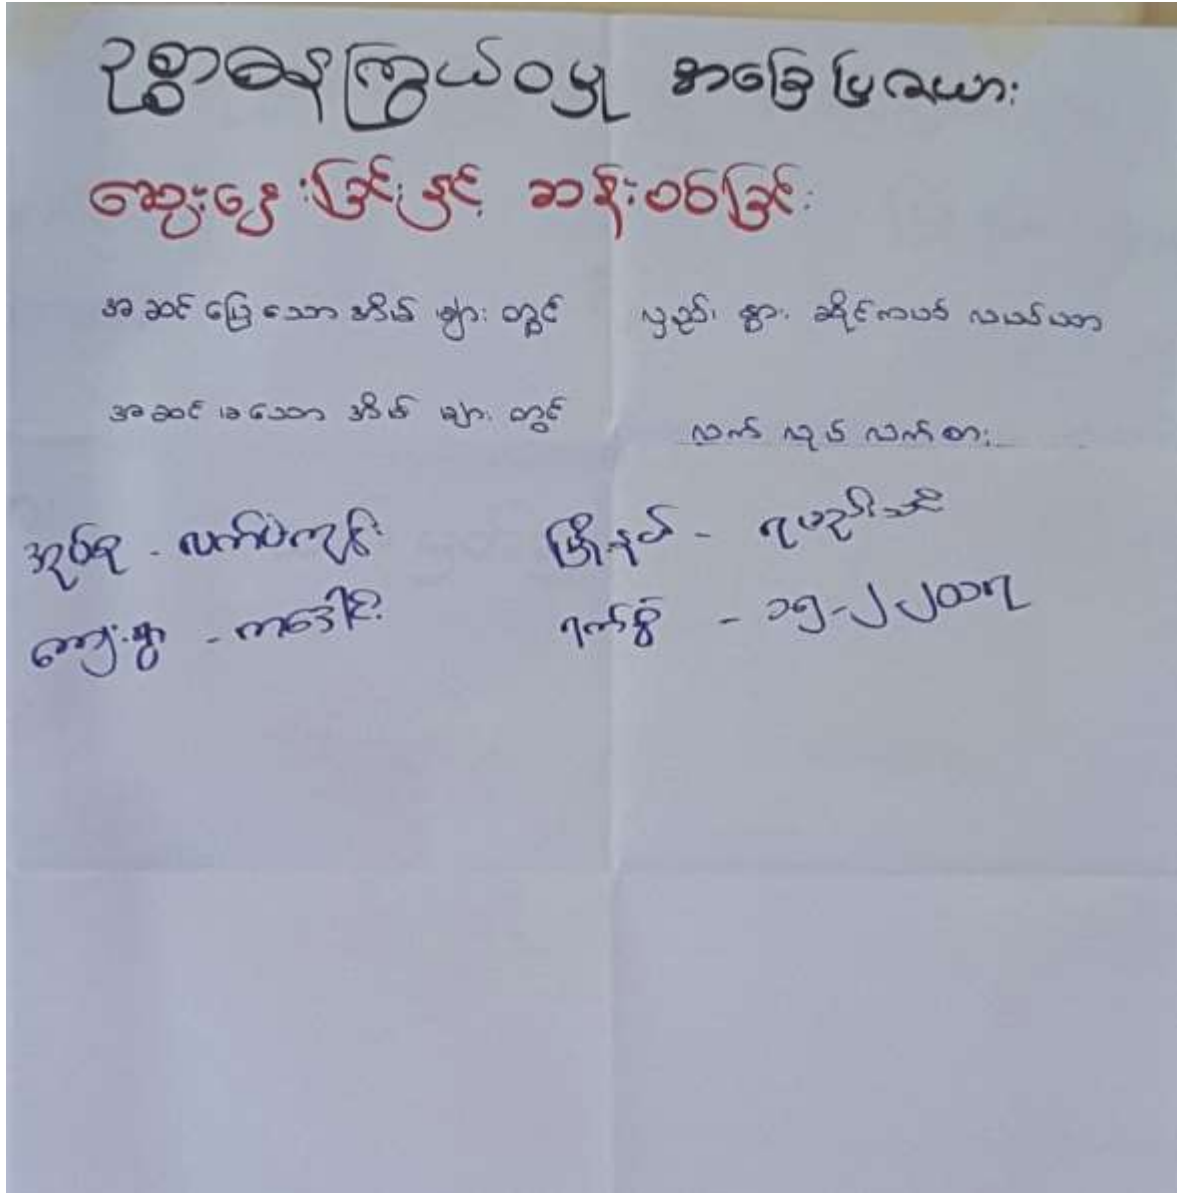 ဥစ္စာဓနကြွယ်ဝမှု အခြေပြဇယား
ဆွေးနွေးခြင်းနှင့် ဆန်းစစ်ခြင်း
အဆင်ပြေသောအိမ်များတွင် လှည်း၊ နွား၊ ဆိုင်ကယ် လယ်ယာ
အဆင်မပြေသောအိမ်များတွင် လက်လုပ်လက်စား
အုပ်စု - လက်ပံကျွန်း မြို့နယ် - ရမည်းသင်း
ကျေးရွာ - ကဒေါင်း ရက်စွဲ - ၁၅-၂-၂၀၁၇